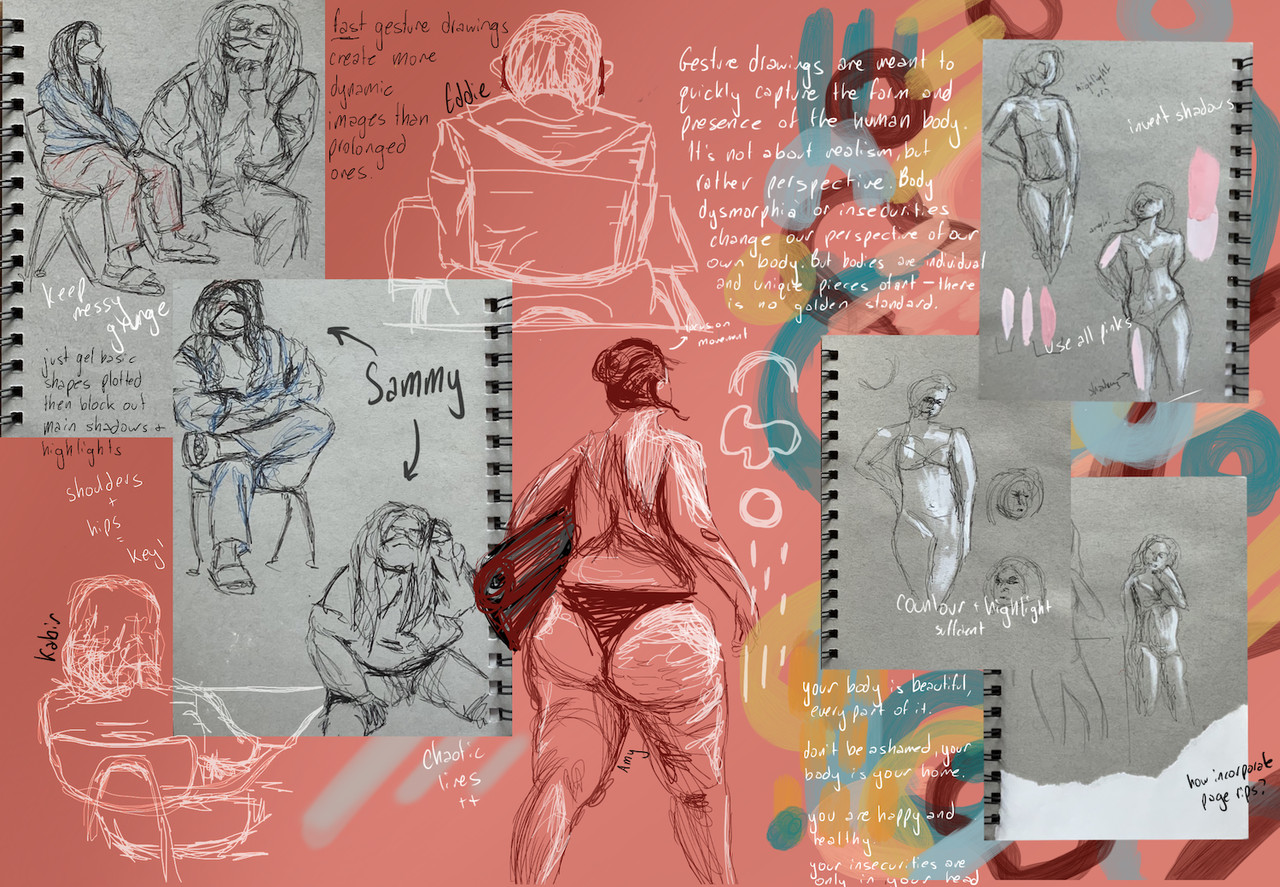 fast gesture drawings
create more
dynamic
images than
prolonged
ones.
Eddie
Gesture drawings are meant to
quickly capture the form and
presence of the human body.
It's not about realism, but
rather perspective. Body
dysmorphia or insecurities
change our perspective of our
own body. But bodies are individual
and unique pieces of art – there
is no golden standard.
highlight
invert shadows
use all pinks
shadows
keep
messy
grunge
just get basic
shapes plotted
then block out
main shadows +
highlights
Sammy
focus on
movement
shoulders
+
hips
=
key!
Kabir
chaotic
lines
++
Amy
countour + highlight
sufficient
your body is beautiful,
every part of it.
don't be ashamed, your
body is your home.
you are happy and
healthy.
your insecurities are
only in your head
how incorporate
page rips?